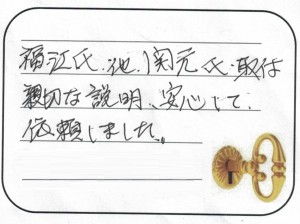 福江氏、他、関元氏、取付
親切な説明、安心して、
依頼しました。